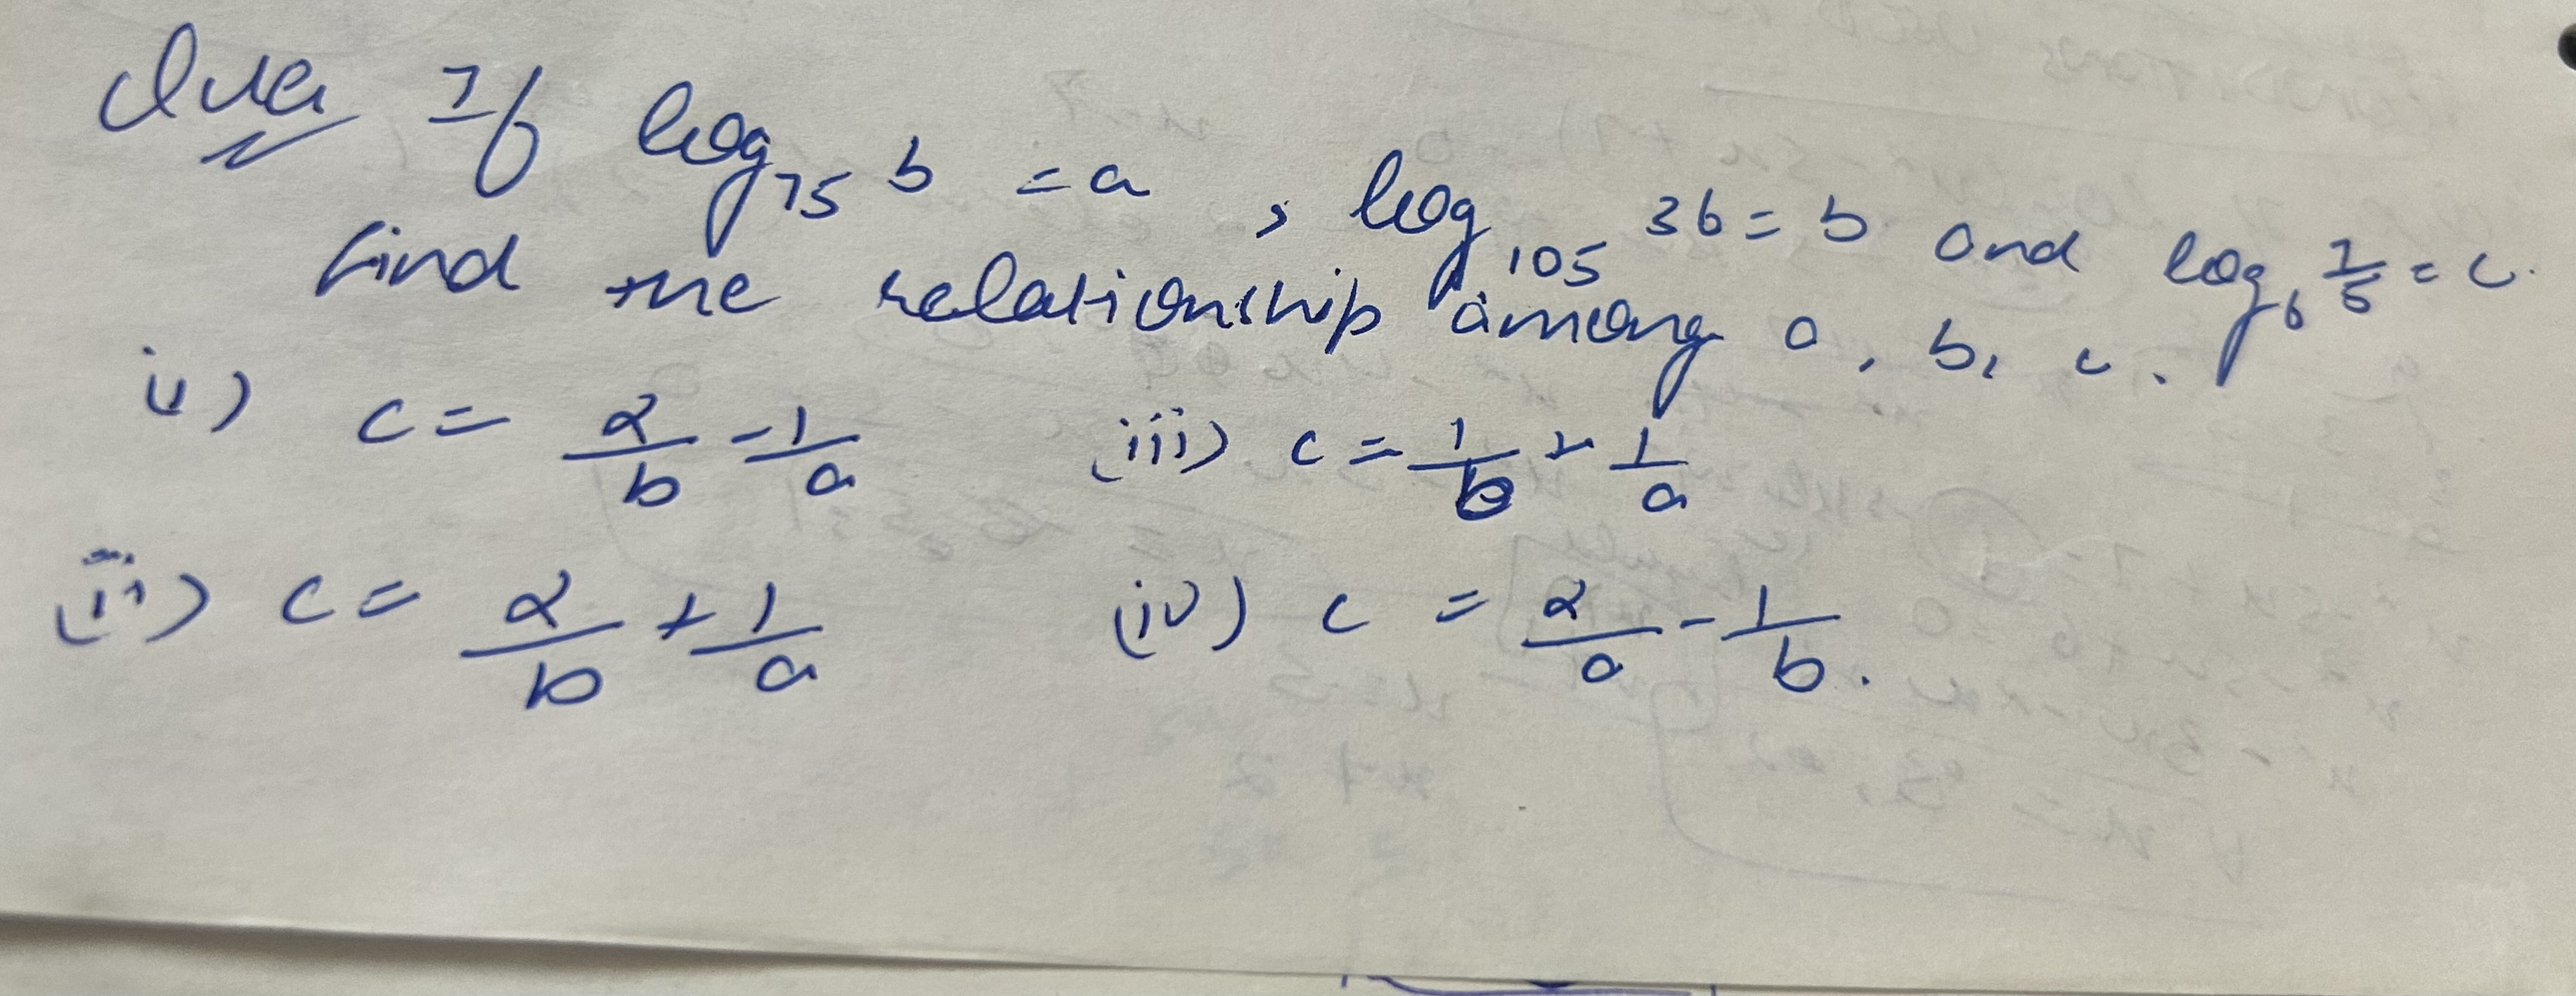 Ques If log₇₅ 6 = a , log₁₀₅ 36 = b and log₆ 7/5 = c.
find the relationship among a, b, c.
(i) c = 2/b - 1/a (iii) c = 1/b + 1/a
(ii) c = 2/b + 1/a (iv) c = 2/a - 1/b.